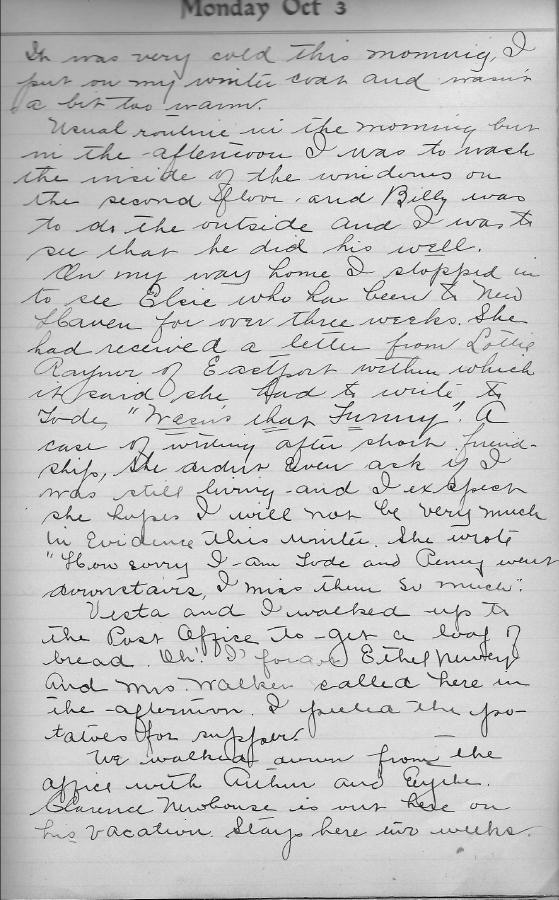 Monday Oct 3
It was very cold this morning, I
put on my winter coat and wasn't
a bit too warm.
Usual routine in the morning but
in the afternoon I was to wash
the inside of the windows on
the second floor and Billy was
to do the outside and I was to
see that he did his well.
On my way home I stopped in
to see Elsie who has been to New
Haven for over three weeks. She
had received a letter from Lottie
Raynor of Eastport within which
it said she had to write to
Tode, "Wasn't that Funny". A
case of writing after short friend-
ship, She didn't even ask if I
was still living and I expect
she hopes I will not be very much
in Evidence this winter. She wrote
"How sorry I am Tode and Penny went
downstairs, I miss them so much".
Vesta and I walked up to
the Post Office to get a loaf of
bread. Oh! I forgot Ethel
And Mrs. Walker called here in
the afternoon. I peeled the po-
tatoes for supper.
We walked down from the
office with Arthur and
Clarence Newhouse is out here on
his vacation. Stays here two weeks.